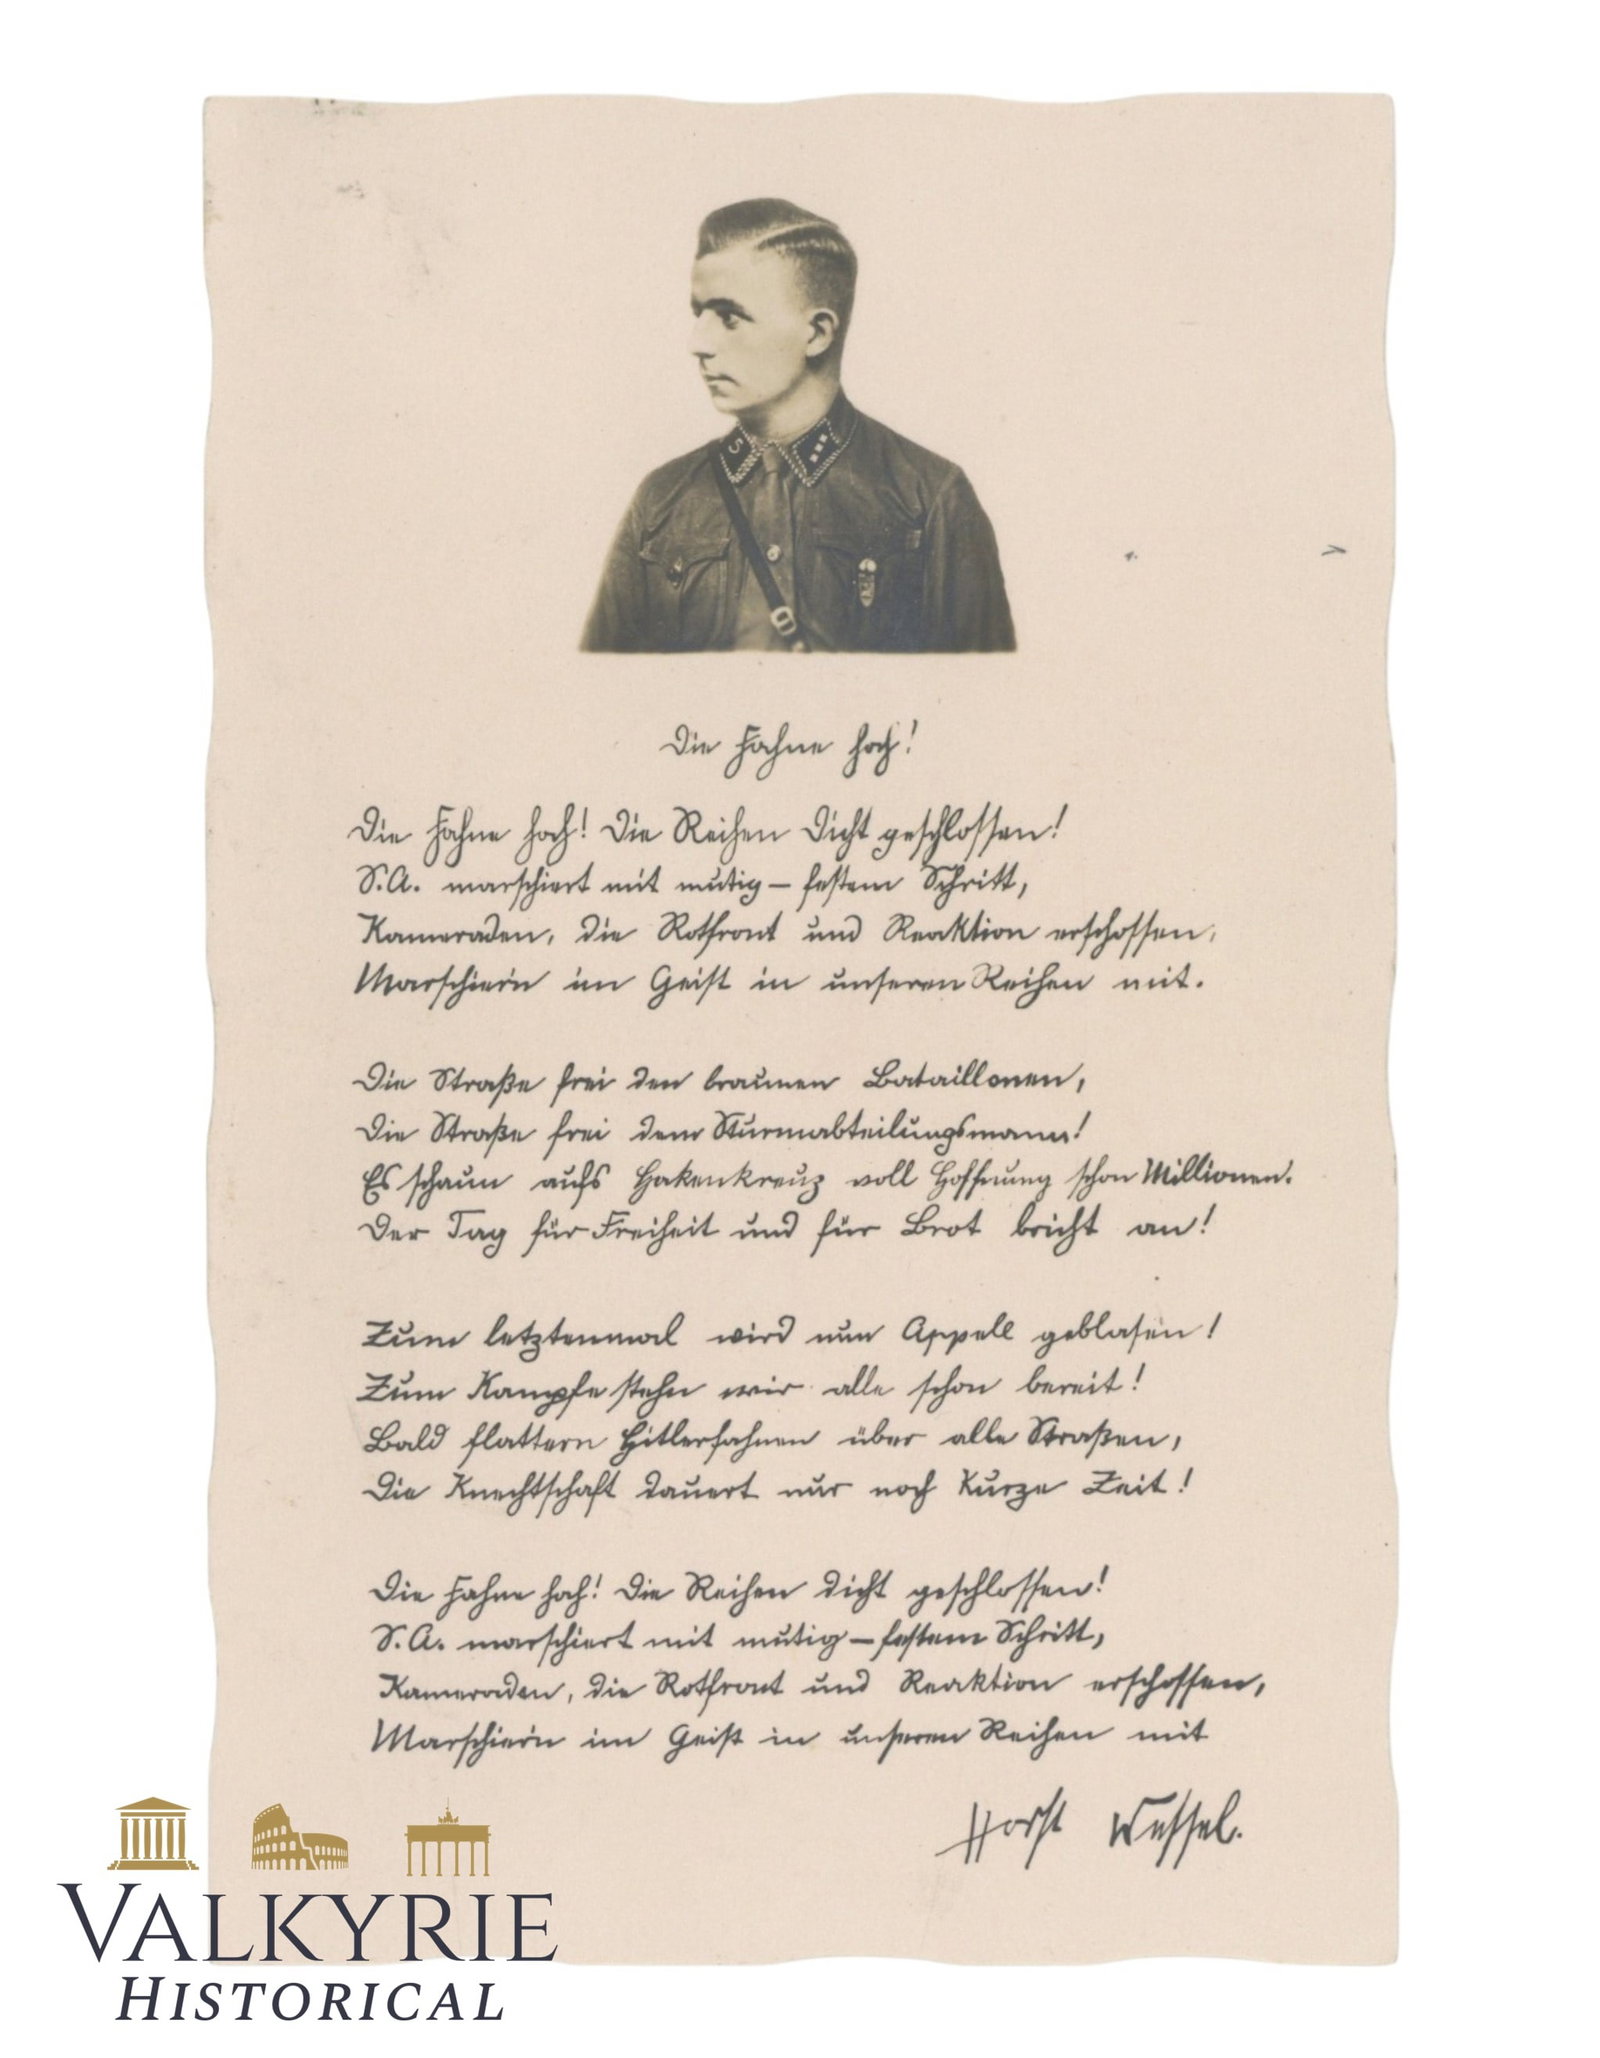 5
Die Fahne hoch!
Die Fahne hoch! Die Reihen dicht geschlossen!
S.A. marschiert mit mutig – festem Schritt,
Kameraden, die Rotfront und Reaktion erschossen,
Marschier'n im Geist in unseren Reihen mit.
Die Straße frei den braunen Bataillonen,
Die Straße frei dem Sturmabteilungsmann!
Es schaun aufs Hakenkreuz voll Hoffnung schon Millionen.
Der Tag für Freiheit und für Brot bricht an!
Zum letztenmal wird nun Appell geblasen!
Zum Kampfe stehn wir alle schon bereit!
Bald flattern Hitlerfahnen über alle Straßen,
Die Knechtschaft dauert nur noch kurze Zeit!
Die Fahne hoch! Die Reihen dicht geschlossen!
S.A. marschiert mit mutig – festem Schritt,
Kameraden, die Rotfront und Reaktion erschossen,
Marschier'n im Geist in unseren Reihen mit
Horst Wessel.
VALKYRIE
HISTORICAL